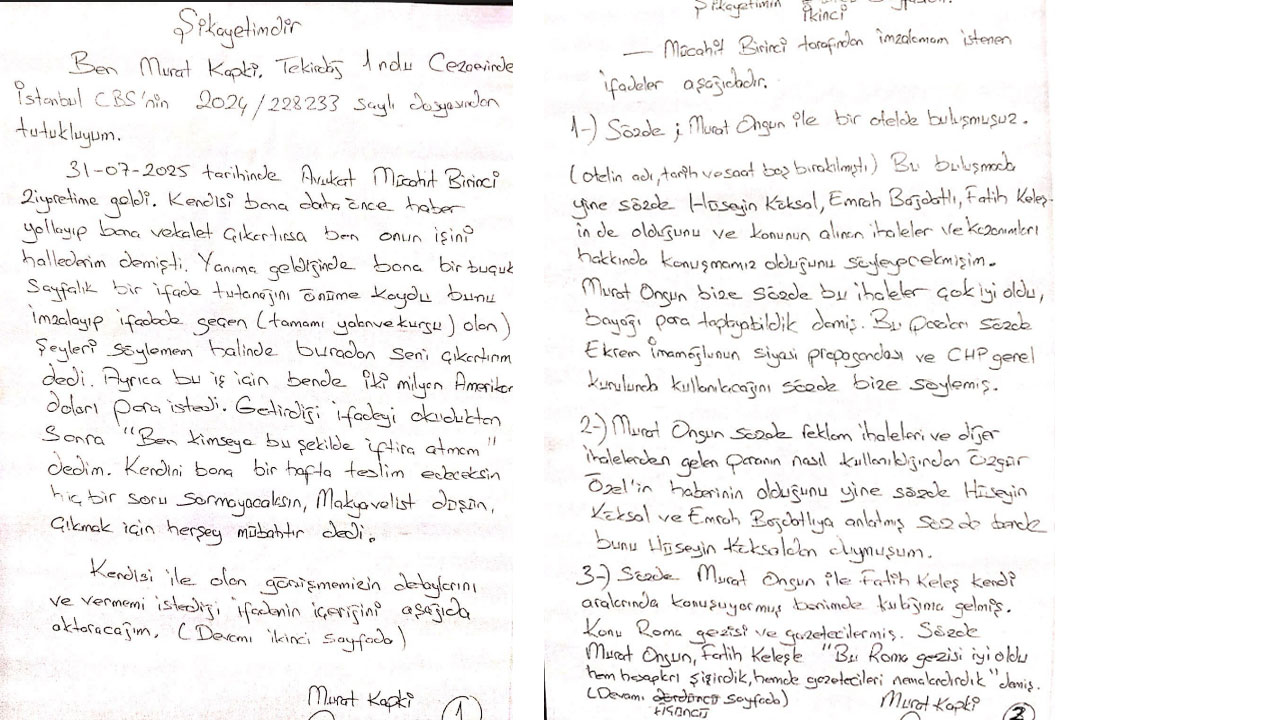 Şikayetimdir
Ben Murat Kapki. Tekirdağ 1 nolu Cezaevinde
İstanbul CBS'nin 2024/228233 sayılı dosyasından
tutukluyum.
31-07-2025 tarihinde Avukat Mücahit Birinci
Ziyaretime geldi. Kendisi bana daha önce haber
yollayıp bana vekalet çıkartırsa ben onun işini
hallederim demişti. Yanıma geldiğinde bana bir buçuk
Sayfalık bir ifade tutanağını önüme koydu bunu
imzalayıp ifadede geçen (tamamı yalan ve kurgu) olan)
Şeyleri söylemem halinde buradan seni çıkartırım
dedi. Ayrıca bu iş için bende iki milyon Amerikan
doları para istedi. Getirdiği ifadeyi okuduktan
Sonra "Ben kimseye bu şekilde iftira atmam"
dedim. Kendini bana bir hafta teslim edeceksin
hiç bir soru sormayacaksın, Makyavelist düşün,
Çıkmak için herşey mübahtır dedi.
Kendisi ile olan görüşmemizin detaylarını
ve vermemi istediği ifadenin içeriğini aşağıda
aktaracağım. (Devamı ikinci sayfada)
Murat Kapki
1
Şikayetimin ikinci
— Mücahit Birinci tarafından imzalamam istenen
ifadeler aşağıdadır.
1-) Sözde ; Murat Ongun ile bir otelde buluşmuşuz.
(otelin adı, tarih ve saat boş bırakılmıştı) Bu buluşmada
yine sözde Hüseyin Köksal, Emrah Bağdatlı, Fatih Keleş-
in de olduğunu ve konunun alınan ihaleler ve kazanımları
hakkında konuşmamız olduğunu söyleyecekmişim.
Murat Ongun bize sözde bu ihaleler çok iyi oldu,
bayağı para toplayabildik demiş. Bu paraları sözde
Ekrem İmamoğlunun siyasi propagandası ve CHP genel
kurulunda kullanılacağını sözde bize söylemiş.
2-) Murat Ongun sözde reklam ihaleleri ve diğer
ihalelerden gelen paranın nasıl kullanıldığından Özgür
Özel'in haberinin olduğunu yine sözde Hüseyin
Köksal ve Emrah Bağdatlıya anlatmış sözde bende
bunu Hüseyin Köksaldan duymuşum.
3-) Sözde Murat Ongun ile Fatih Keleş kendi
aralarında konuşuyormuş benimde kulağıma gelmiş.
Konu Roma gezisi ve gazetecilermiş. Sözde
Murat Ongun, Fatih Keleşe "Bu Roma gezisi iyi oldu
hem hesapları şişirdik, hemde gazetecileri nemalandırdık" demiş.
(Devamı dördüncü sayfada)
Murat Kapki
2